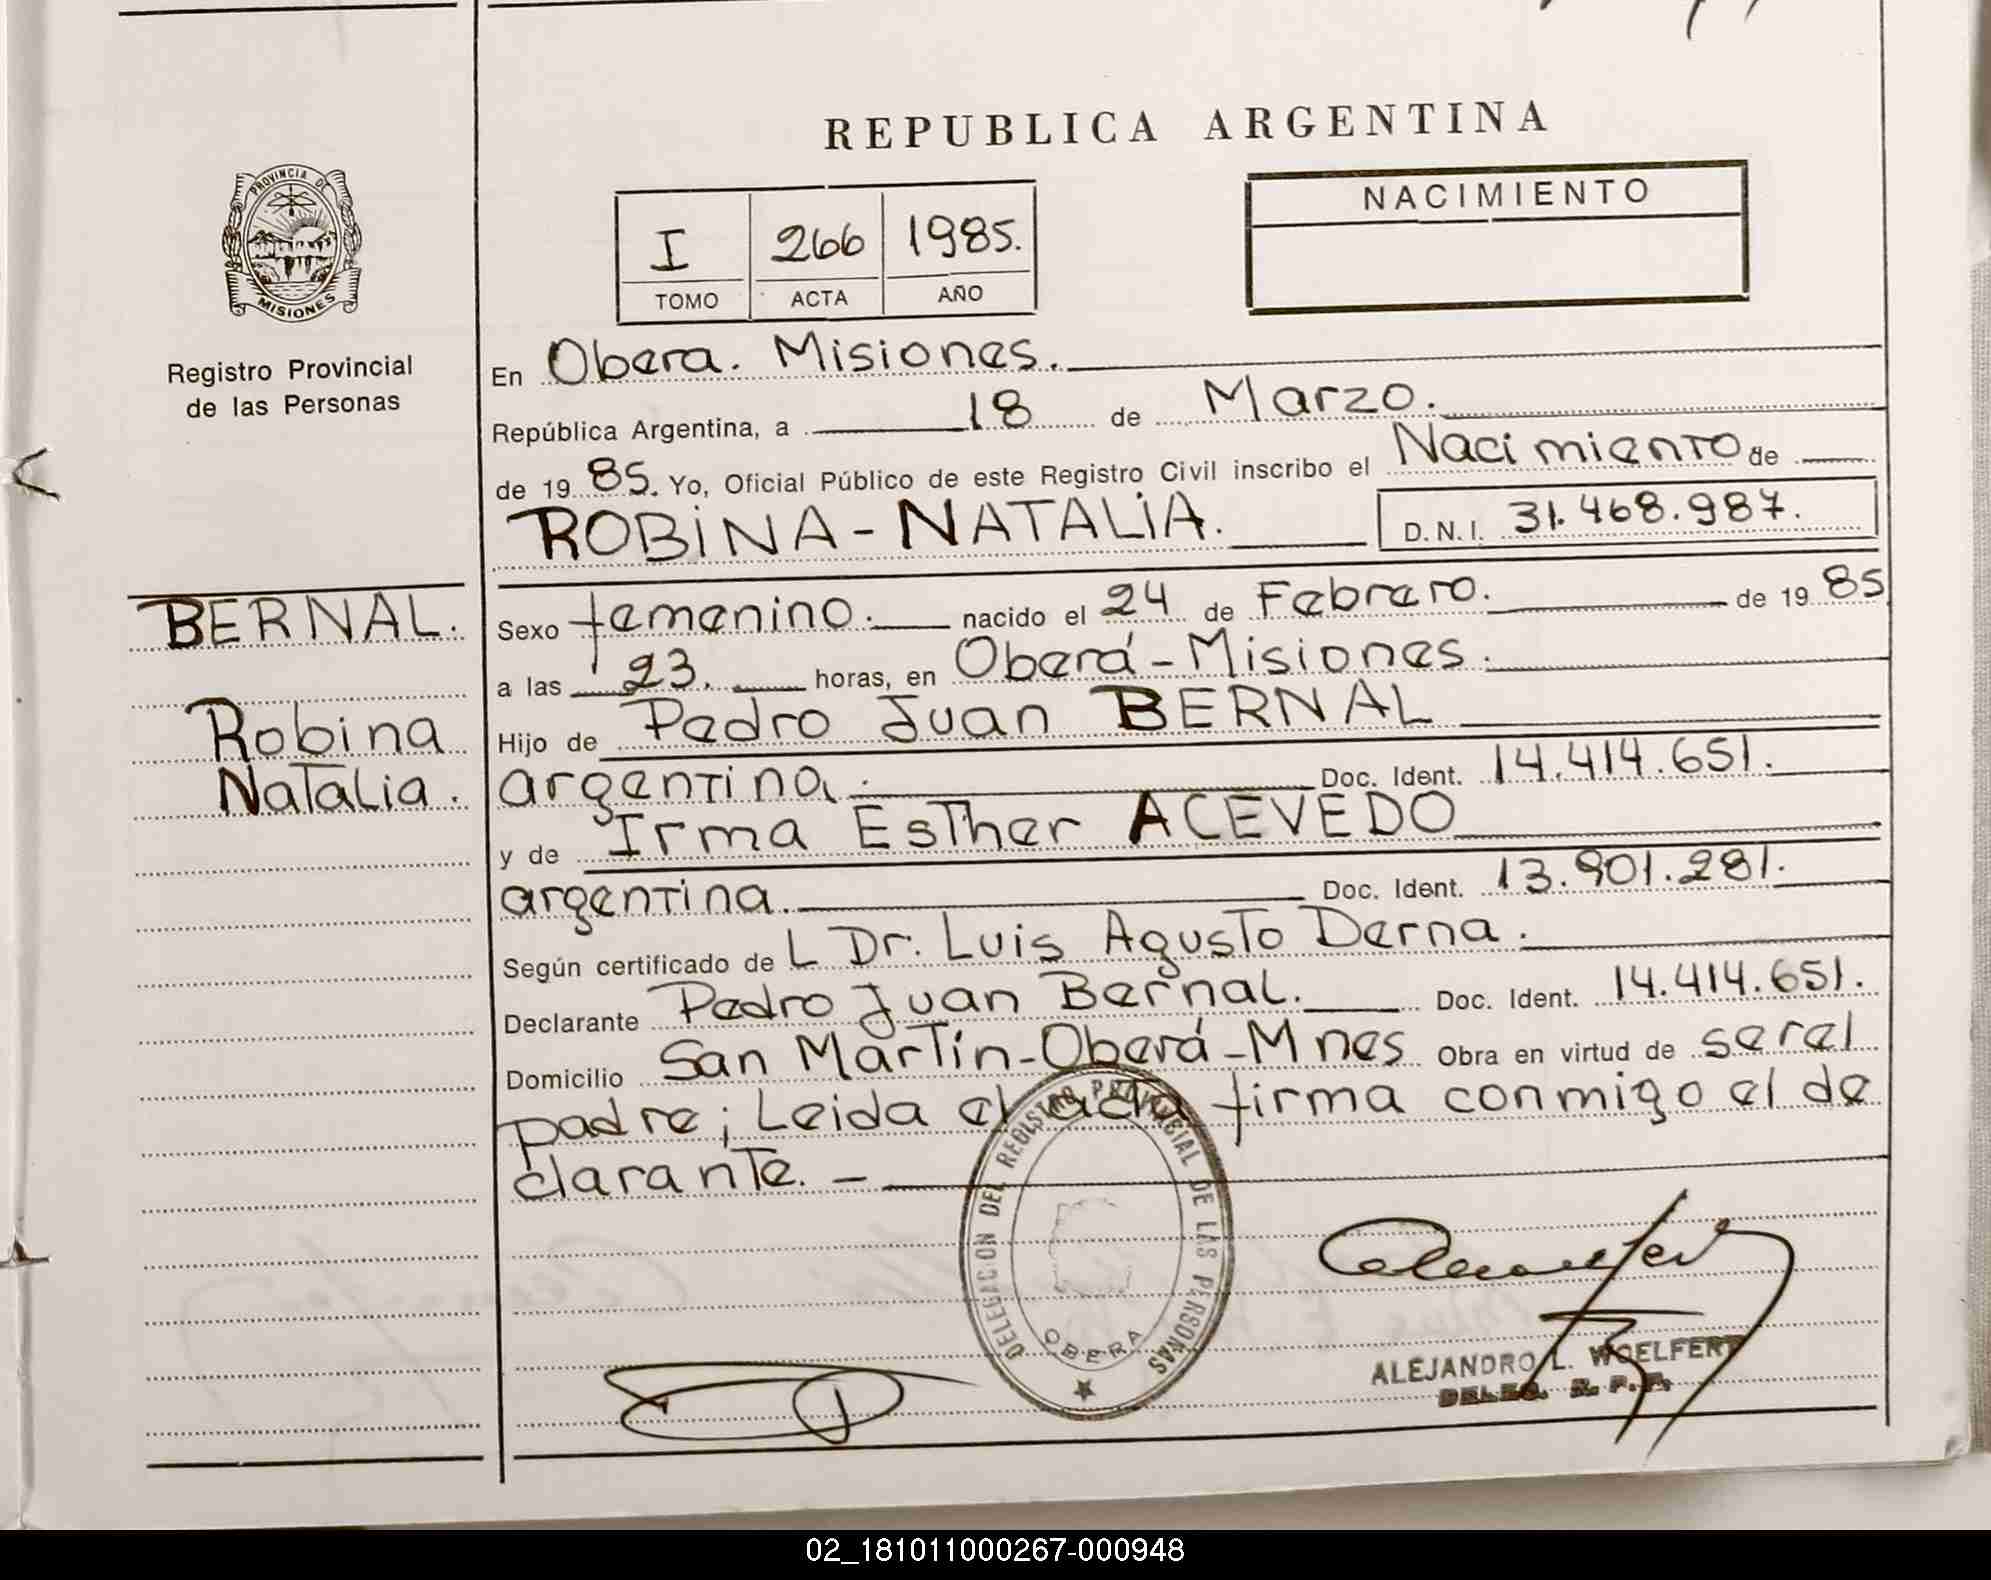 REPUBLICA ARGENTINA
PROVINCIA DE
MISIONES
Registro Provincial
de las Personas
I 266 1985.
TOMO ACTA AÑO
NACIMIENTO
En Obera. Misiones.
República Argentina, a 18 de Marzo.
de 19 85. Yo, Oficial Público de este Registro Civil inscribo el Nacimiento de
ROBINA - NATALIA. D.N.I. 31.468.987.
BERNAL.
Robina
Natalia.
Sexo femenino. nacido el 24 de Febrero. de 19 85
a las 23. horas, en Oberá - Misiones.
Hijo de Pedro Juan BERNAL
argentina. Doc. Ident. 14.414.651.
y de Irma Esther ACEVEDO
argentina. Doc. Ident. 13.901.281.
Según certificado de L Dr. Luis Agusto Derna.
Declarante Pedro Juan Bernal. Doc. Ident. 14.414.651.
Domicilio San Martín - Oberá - Mnes Obra en virtud de serel
padre; Leida el acta firma conmigo el de
clarante. -
DELEGACION DEL REGISTRO PROVINCIAL DE LAS PERSONAS
OBERA
ALEJANDRO L. WOELFERT
DELEG. R. P. P.
02_181011000267-000948